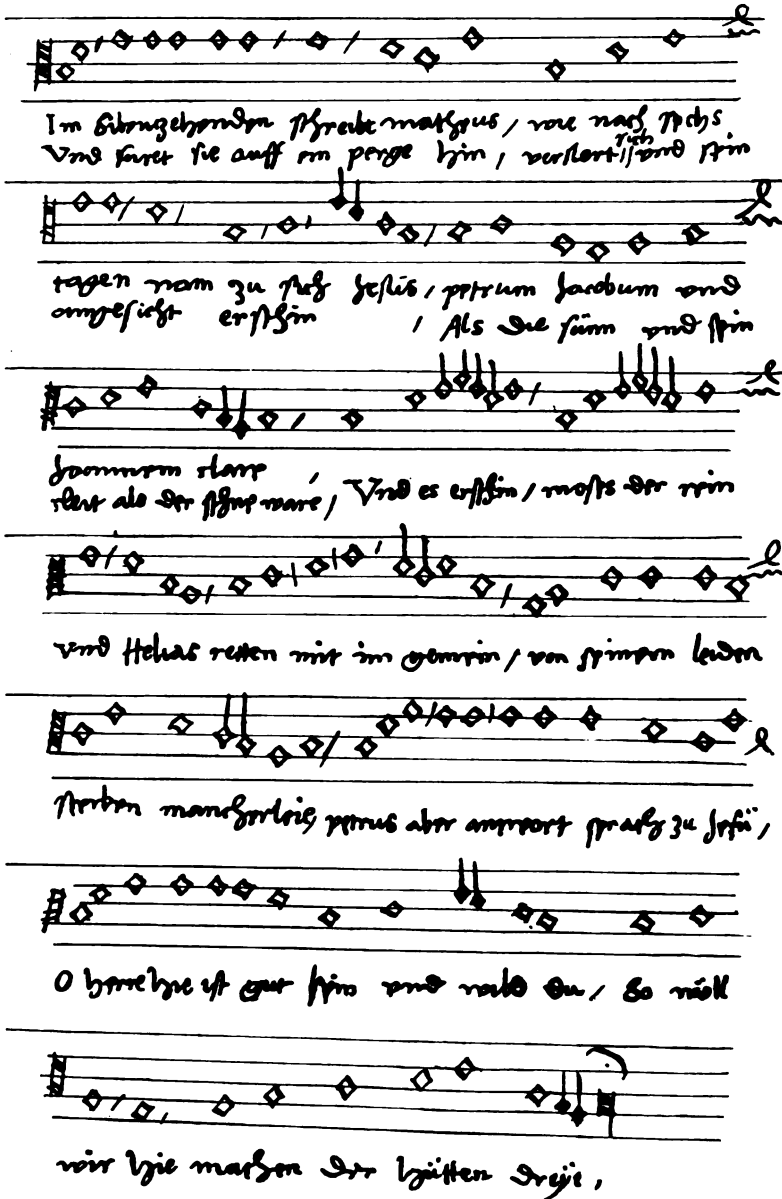 Im Sibenzehenden schreibt matheus / wie nach sechs
Und füret sie auff ein perge hin / verclert sich / und sein
tagen nam zu sich Jesus / petrum Jacobum und
angesicht erschin / Als die sunn und sein
Joannem clare /
cleit als der schne ware / Und es erschin / moses der rein
und Helias retten mit im gemein / von seinem leiden
sterben mancherleie / petrus aber antwort sprach zu Jesu /
O herre hie ist gut sein und wild du / So wöll
wir hie machen der hütten dreÿe /